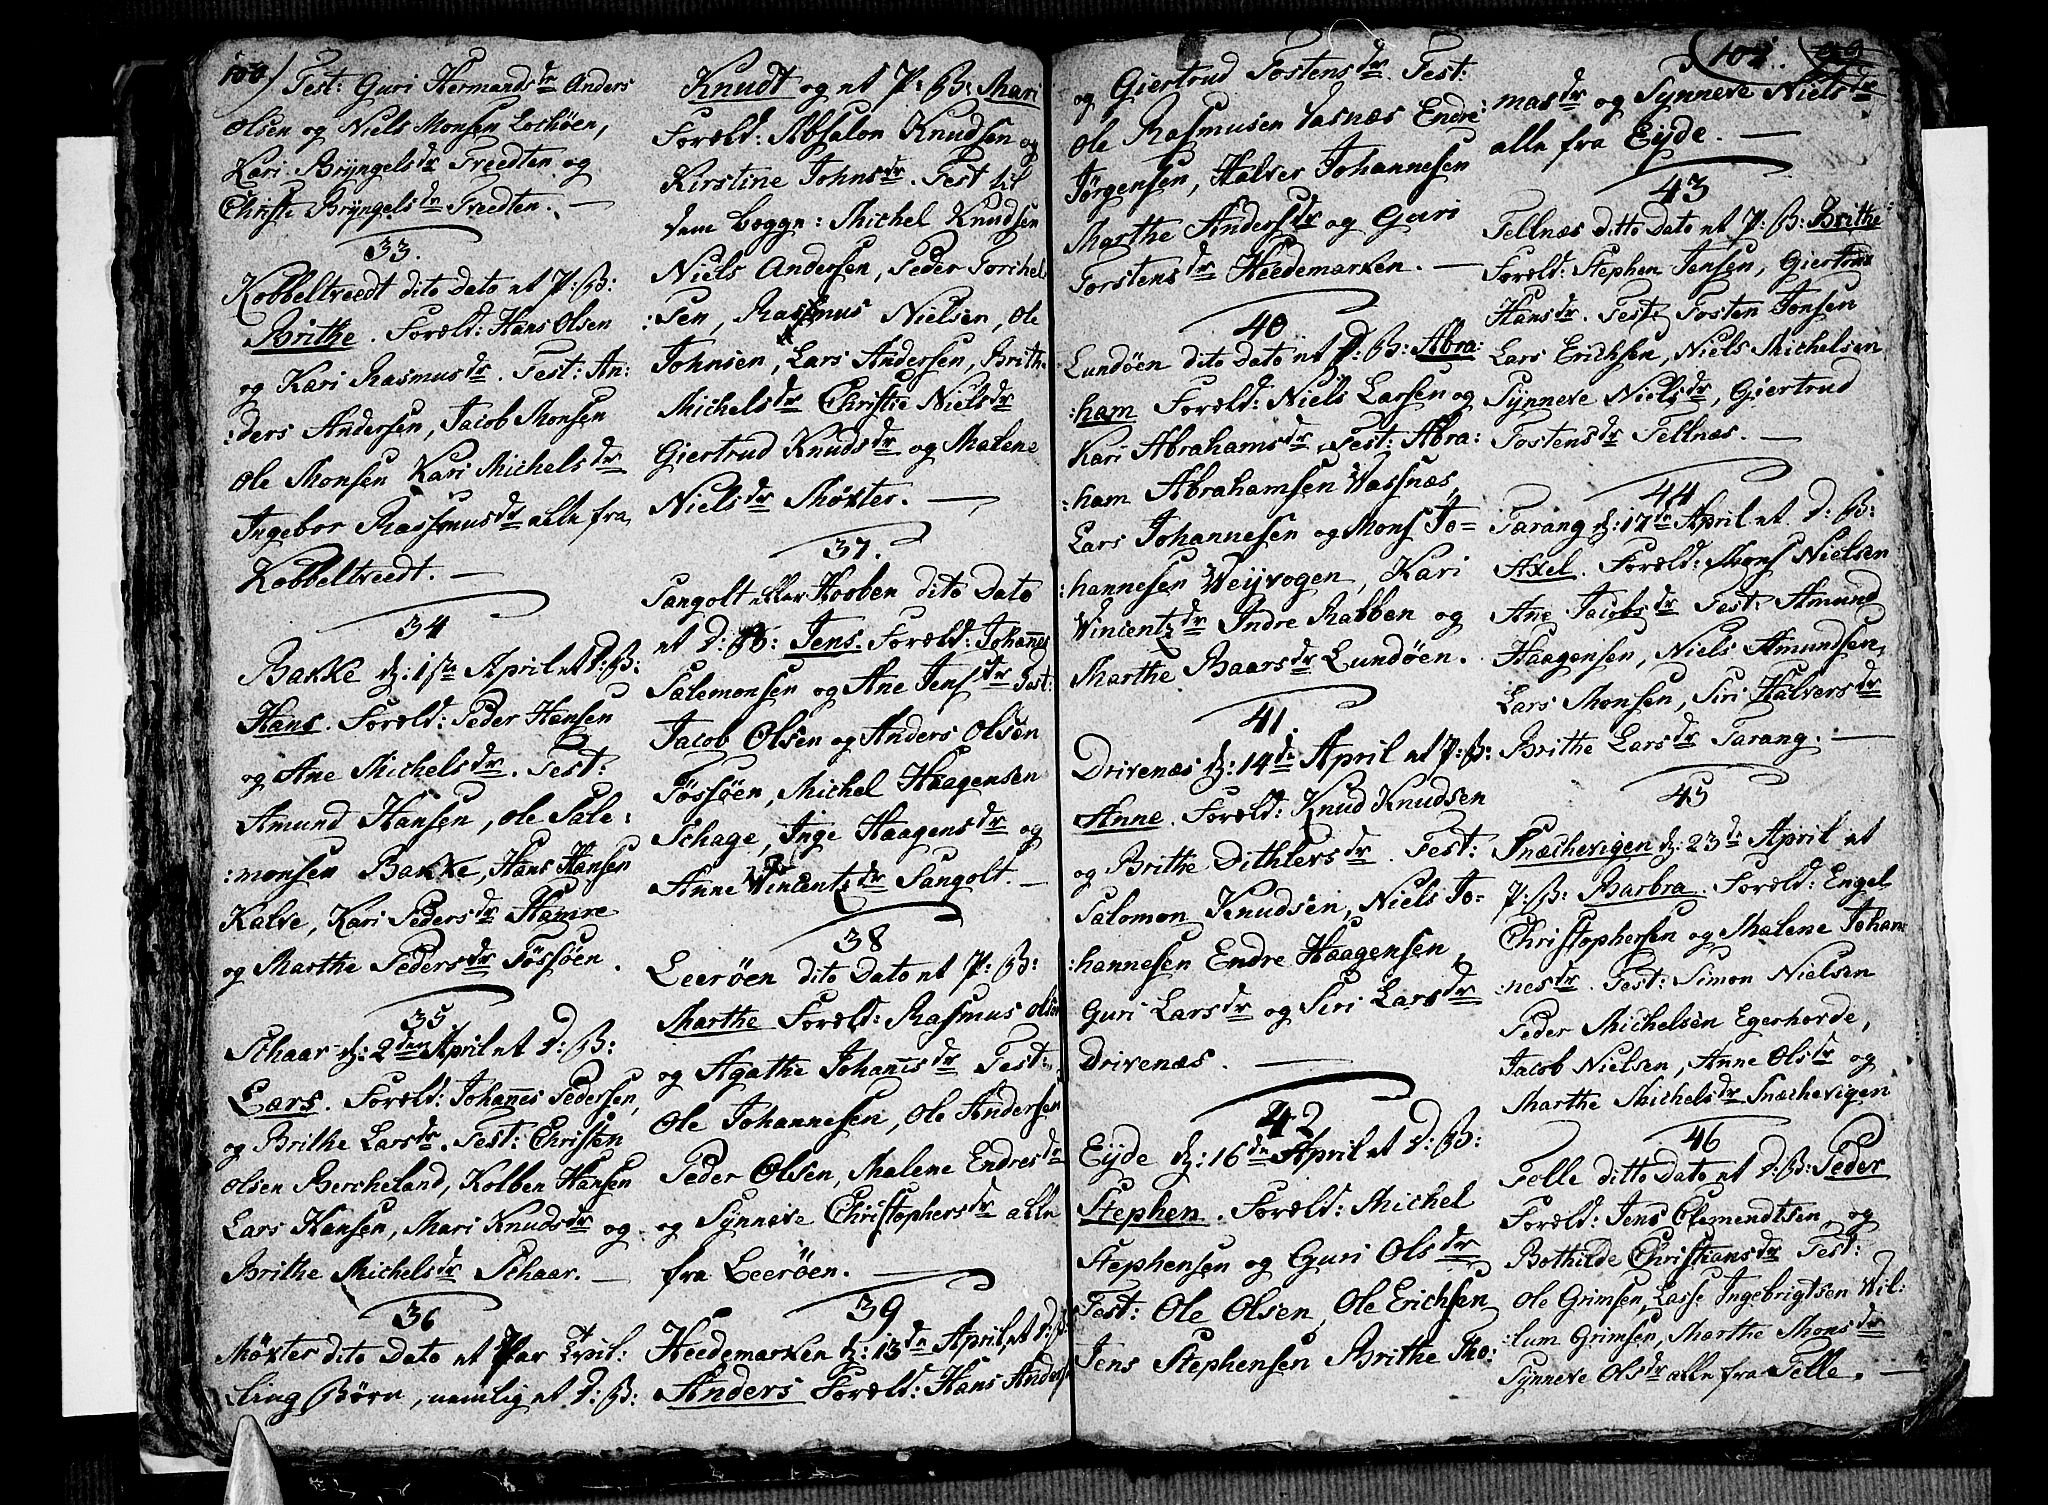 100) Test: Guri Hermandsdr Anders
Olsen og Niels Monsen Lochøen,
Kari Bryngelsdr Treedten og
Christi Bryngelsdr Treedten. —
33.
Kobbeltveedt dito Dato et P: B:
Brithe. Foræld: Hans Olsen
og Kari Rasmusdr. Test: An:
:ders Andersen, Jacob Monsen
Ole Monsen Kari Michelsdr
Ingebor Rasmusdr alle fra
Kobbeltveedt. —
34
Bakke d: 1ste April et D: B:
Hans. Foræld: Peder Hansen
og Ane Michelsdr. Test:
Amund Hansen, Ole Sale:
:monsen Bakke, Hans Hansen
Kalve, Kari Pedersdr Hamre
og Marthe Pedersdr Føssøen.
35
Schaar d: 2den April et D: B:
Lars. Foræld: Johannes Pedersen,
og Brithe Larsdr. Test: Christen
Olsen Bercheland, Kolben Hansen
Lars Hansen, Mari Knudsdr og
Brithe Michelsdr Schaar. —
36
Møxter dito Dato et Par Tvil:
:ling Børn, nemlig et D: B:
Knudt og et P: B: Mari
Foræld: Absalon Knudsen og
Kirstine Johnsdr. Test til
dem begge: Michel Knudsen
Niels Andersen, Peder Torchel
:sen, Rasmus Nielsen, Ole
Johnsen, Lars Andersen, Brithe
Michelsdr Christie Nielsdr
Giertrud Knudsdr og Malene
Nielsdr Møxter. —
37.
Sangolt eller Kooben dito Dato
et D: B: Jens. Foræld: Johannes
Salemonsen og Ane Jensdr Test:
Jacob Olsen og Anders Olsen
Føssøen, Michel Haagensen
Schage, Inge Haagensdr og
Anne Vincentzdr Sangolt. —
38
Leerøen dito Dato et P: B:
Marthe Foræld: Rasmus Olsen
og Agathe Johanisdr Test:
Ole Johannesen, Ole Andersen
Peder Olsen, Malene Endresdr
og Synneve Christophersdr alle
fra Leerøen. —
39
Heedemarken d: 13de April et D: B:
Anders Foræld: Hans Anders
og Giertrud Tostensdr. Test:
Ole Rasmusen Vasnæs Endre
Jørgensen, Halver Johannesen
Marthe Andersdr og Guri
Torstensdr Heedemarken. —
40
Lundøen dito Dato et D: B: Abra:
:ham Foræld: Niels Larsen og
Kari Abrahamsdr, Test: Abra:
:ham Abrahamsen Vassnæs,
Lars Johannesen og Mons Jo=
:hannesen Veijvogen, Kari
Vincentzdr Indre Rabben og
Marthe Baarsdr Lundøen.
41
Drivenæs d: 14de April et P: B:
Anne. Foræld: Knud Knudsen
og Brithe Dithlersdr. Test:
Salomon Knudsen, Niels Jo=
:hannesen Endre Haagensen,
Guri Larsdr og Siri Larsdr
Drivenæs. —
42
Eyde d: 16de April et D: B:
Stephen. Foræld: Michel
Stephensen og Guri Olsdr
Test: Ole Olsen, Ole Erichsen
Jens Stephensen Brithe Tho:
masdr og Synneve Nielsdr
alle fra Eyde. —
43
Tellnæs ditto Dato et P: B: Brithe
Foræld: Stephen Jensen, Giertrud
Hansdr. Test: Tosten Jonsen
Lars Erichsen, Niels Michelsen
Synneve Nielsdr, Giertrud
Tostensdr Tellnæs. —
44
Tarang d: 17de April et D: B:
Axel. Foræld: Mons Nielsen
Ane Jacobsdr Test: Amund
Haagensen, Niels Amundsen,
Lars Monsen, Siri Halversdr
Brithe Larsdr Tarang. —
45
Snæchevigen d: 23de April et
P: B: Barbra. Foræld: Engel
Christophersen og Malene Johan
:nesdr. Test: Simon Nielsen
Peder Michelsen Egerhorde,
Jacob Nielsen, Anne Olsdr og
Marthe Michelsdr Snæchevigen
46
Telle ditto Dato et D: B: Peder
Foræld: Jens Clemendtsen og
Bothilde Christiansdr Test:
Ole Grimsen, Lasse Ingebrigtsen Wil:
lum Grimsen, Marthe Monsdr
Synneve Olsdr alle fra Telle. —